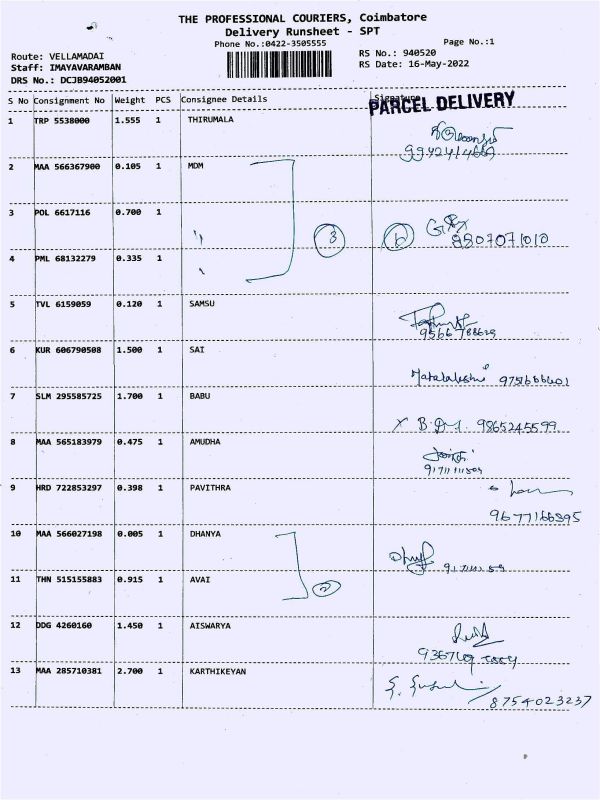 THE PROFESSIONAL COURIERS, Coimbatore
Delivery Runsheet - SPT
Phone No.:0422-3505555
Page No.:1
Route: VELLAMADAI
RS No.: 940520
Staff: IMAYAVARAMBAN
RS Date: 16-May-2022
DRS No.: DCJB94052001
S No Consignment No Weight PCS Consignee Details Signature
PARCEL DELIVERY
1 TRP 5538000 1.555 1 THIRUMALA
2 MAA 566367900 0.105 1 MDM
3 POL 6617116 0.700 1
3 6
9807071010
4 PML 68132279 0.335 1
5 TVL 6159059 0.120 1 SAMSU
6 KUR 606790508 1.500 1 SAI
Mahalakshmi 9751666601
7 SLM 295585725 1.700 1 BABU
9865245599
8 MAA 565183979 0.475 1 AMUDHA
9 HRD 722853297 0.398 1 PAVITHRA
9677166895
10 MAA 566027198 0.005 1 DHANYA
11 THN 515155883 0.915 1 AVAI
2
12 DDG 4260160 1.450 1 AISWARYA
13 MAA 285710381 2.700 1 KARTHIKEYAN
8754023237